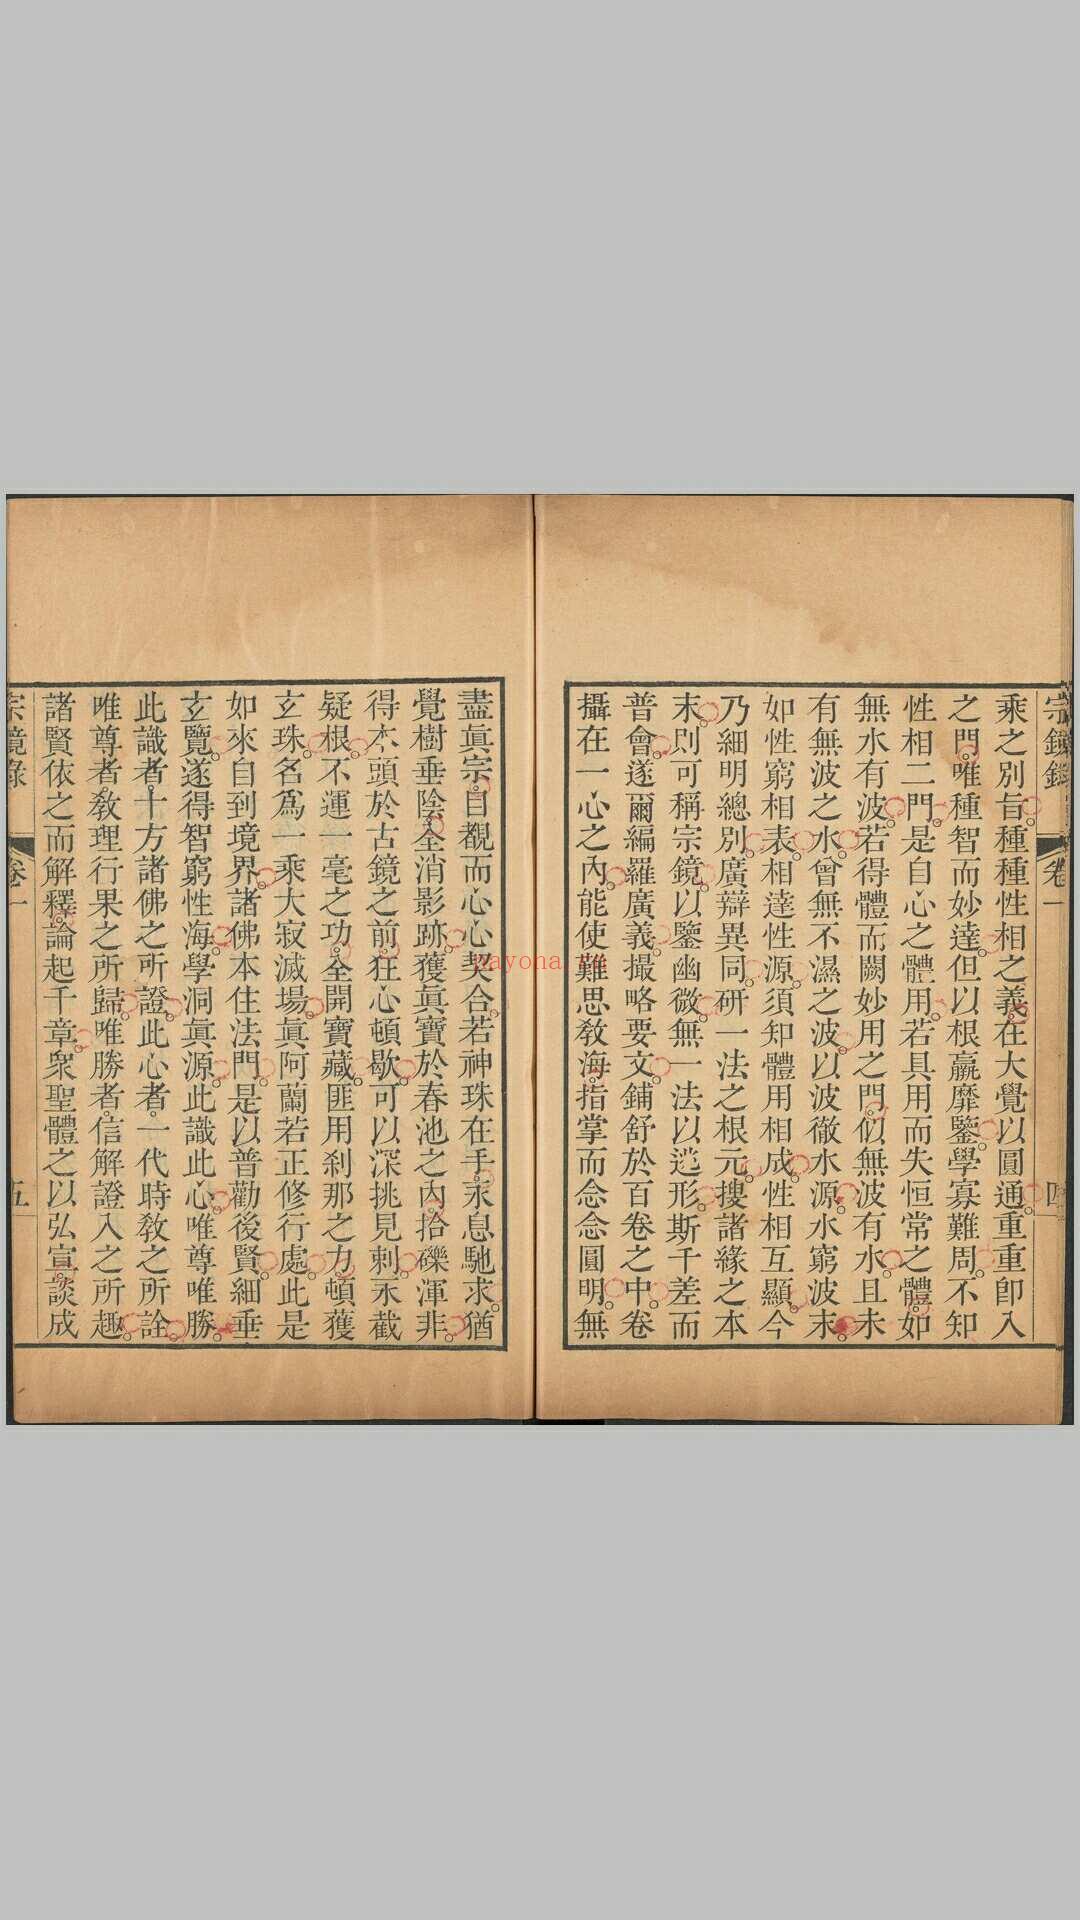 宗鏡錄 卷一 四
乘之別旨。種種性相之義。在大覺以圓通。重重卽入
之門。唯種智而妙達。但以根羸靡鑒。學寡難周。不知
性相二門。是自心之體用。若具用而失恒常之體。如
無水有波。若得體而闕妙用之門。似無波有水。且未
有無波之水。曾無不濕之波。以波徹水源。水窮波末。
如性窮相表。相達性源。須知體用相成。性相互顯。今
乃細明總別。廣辯異同。研一法之根元。搜諸緣之本
末。則可稱宗鏡。以鑒幽微。無一法以逃形。斯千差而
普會。遂爾編羅廣義。撮略要文。鋪舒於百卷之中。卷
攝在一心之內。能使難思教海。指掌而念念圓明。無
盡眞宗。目覩而心心契合。若神珠在手。永息馳求。猶
覺樹垂陰。全消影跡。獲眞寶於春池之內。拾礫渾非。
得本頭於古鏡之前。狂心頓歇。可以深挑見刺。永截
疑根。不運一毫之功。全開寶藏。匪用刹那之力。頓獲
玄珠。名爲一乘大寂滅場。眞阿蘭若正修行處。此是
如來自到境界。諸佛本住法門。是以普勸後賢。細垂
玄覽。遂得智窮性海。學洞眞源。此識此心。唯尊唯勝。
此識者。十方諸佛之所證。此心者。一代時教之所詮。
唯尊者。教理行果之所歸。唯勝者。信解證入之所趣。
諸賢依之而解釋。論起千章。衆聖體之以弘宣。談成
宗鏡錄 卷一 五
nayona.cn